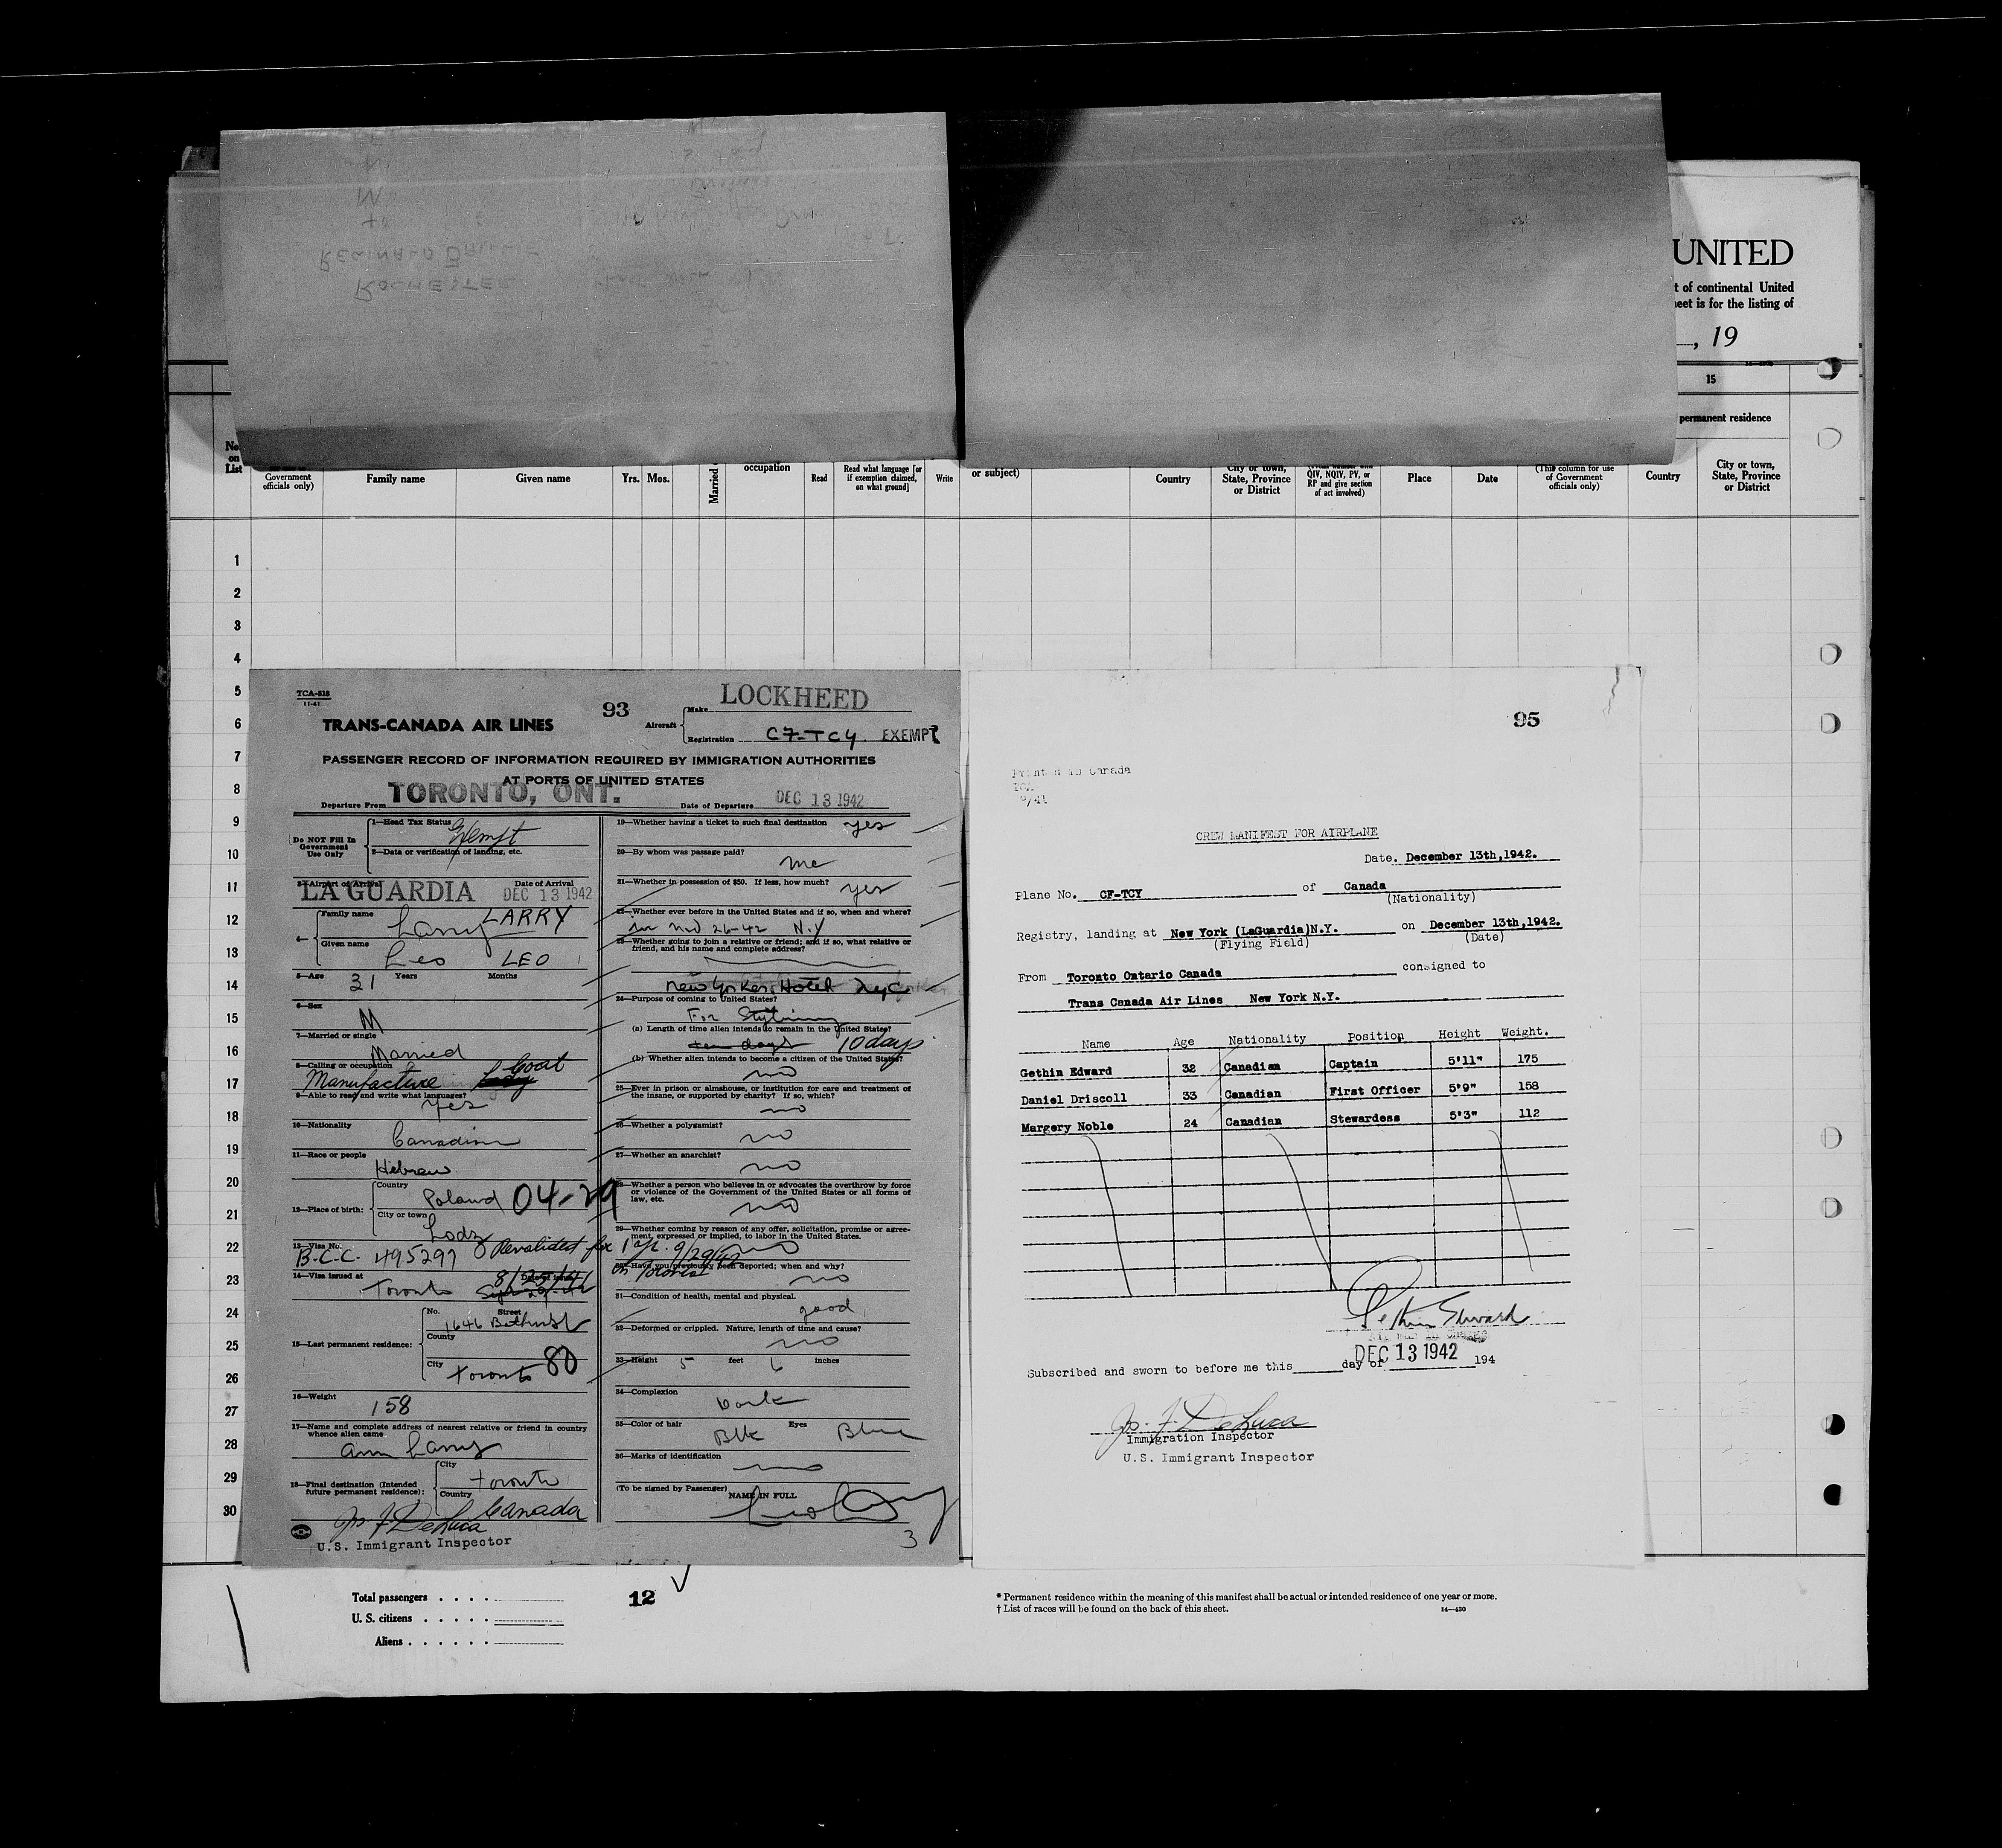 UNITED
t of continental United
eet is for the listing of
, 19
15
permanent residence
No.
on
List
Government
officials only)
Family name
Given name
Yrs.
Mos.
Married
occupation
Read
Read what language [or
if exemption claimed,
on what ground]
Write
or subject)
Country
City or town,
State, Province
or District
QIV, NQIV, PV, or
RP and give section
of act involved)
Place
Date
(This column for use
of Government
officials only)
Country
City or town,
State, Province
or District
1
2
3
4
5
6
7
8
9
10
11
12
13
14
15
16
17
18
19
20
21
22
23
24
25
26
27
28
29
30
TCA-518
11-41
93
LOCKHEED
TRANS-CANADA AIR LINES
Aircraft
Make
Registration C7-TCY. EXEMPT
PASSENGER RECORD OF INFORMATION REQUIRED BY IMMIGRATION AUTHORITIES
AT PORTS OF UNITED STATES
Departure From TORONTO, ONT.
Date of Departure DEC 13 1942
Do NOT Fill In
Government
Use Only
1—Head Tax Status Exempt
2—Data or verification of landing, etc.
3—Airport of Arrival LA GUARDIA
Date of Arrival DEC 13 1942
4—
Family name Larry LARRY
Given name Leo LEO
5—Age 31 Years Months
6—Sex M
7—Married or single Married
8—Calling or occupation Manufacture Coat
9—Able to read and write what languages? Yes
10—Nationality Canadian
11—Race or people Hebrew
12—Place of birth:
Country Poland 04-29
City or town Lodz
13—Visa No. B.C.C. 495297 Revalidated for 1 yr. 9/29/42
at Toronto
14—Visa issued at Toronto
Date of issue 8/25/41
Sept 29-42
15—Last permanent residence:
No. Street 1646 Bathurst
County
City Toronto 80
16—Weight 158
17—Name and complete address of nearest relative or friend in country
whence alien came
Ann Larry
18—Final destination (Intended
future permanent residence):
City Toronto
Country Canada
Jos. F. DeLuca
U.S. Immigrant Inspector
19—Whether having a ticket to such final destination yes
20—By whom was passage paid? me
21—Whether in possession of $50. If less, how much? yes
22—Whether ever before in the United States and if so, when and where?
in 26-42 N.Y
23—Whether going to join a relative or friend; and if so, what relative or
friend, and his name and complete address?
New Yorker Hotel NYC
24—Purpose of coming to United States?
For Styling
(a) Length of time alien intends to remain in the United States?
ten days 10 days
(b) Whether alien intends to become a citizen of the United States?
no
25—Ever in prison or almshouse, or institution for care and treatment of
the insane, or supported by charity? If so, which?
no
26—Whether a polygamist?
no
27—Whether an anarchist?
no
28—Whether a person who believes in or advocates the overthrow by force
or violence of the Government of the United States or all forms of
law, etc.
no
29—Whether coming by reason of any offer, solicitation, promise or agree-
ment, expressed or implied, to labor in the United States.
no
30—Have you previously been deported; when and why?
no
31—Condition of health, mental and physical.
good
32—Deformed or crippled. Nature, length of time and cause?
no
33—Height 5 feet 6 inches
34—Complexion Dark
35—Color of hair Blk Eyes Blue
36—Marks of identification
no
(To be signed by Passenger) NAME IN FULL
Leo Larry
3
95
Printed in Canada
9/41
CREW MANIFEST FOR AIRPLANE
Date. December 13th,1942.
Plane No. CF-TCY of Canada
(Nationality)
Registry, landing at New York (LaGuardia)N.Y. on December 13th,1942.
(Flying Field) (Date)
From Toronto Ontario Canada consigned to
Trans Canada Air Lines New York N.Y.
Name Age Nationality Position Height Weight.
Gethin Edward 32 Canadian Captain 5'11" 175
Daniel Driscoll 33 Canadian First Officer 5'9" 158
Margery Noble 24 Canadian Stewardess 5'3" 112
Gethin Edward
DEC 13 1942
Subscribed and sworn to before me this day of 194
Jos. F. DeLuca
Immigration Inspector
U.S. Immigrant Inspector
Total passengers
U. S. citizens
Aliens
12
* Permanent residence within the meaning of this manifest shall be actual or intended residence of one year or more.
† List of races will be found on the back of this sheet.
14—430